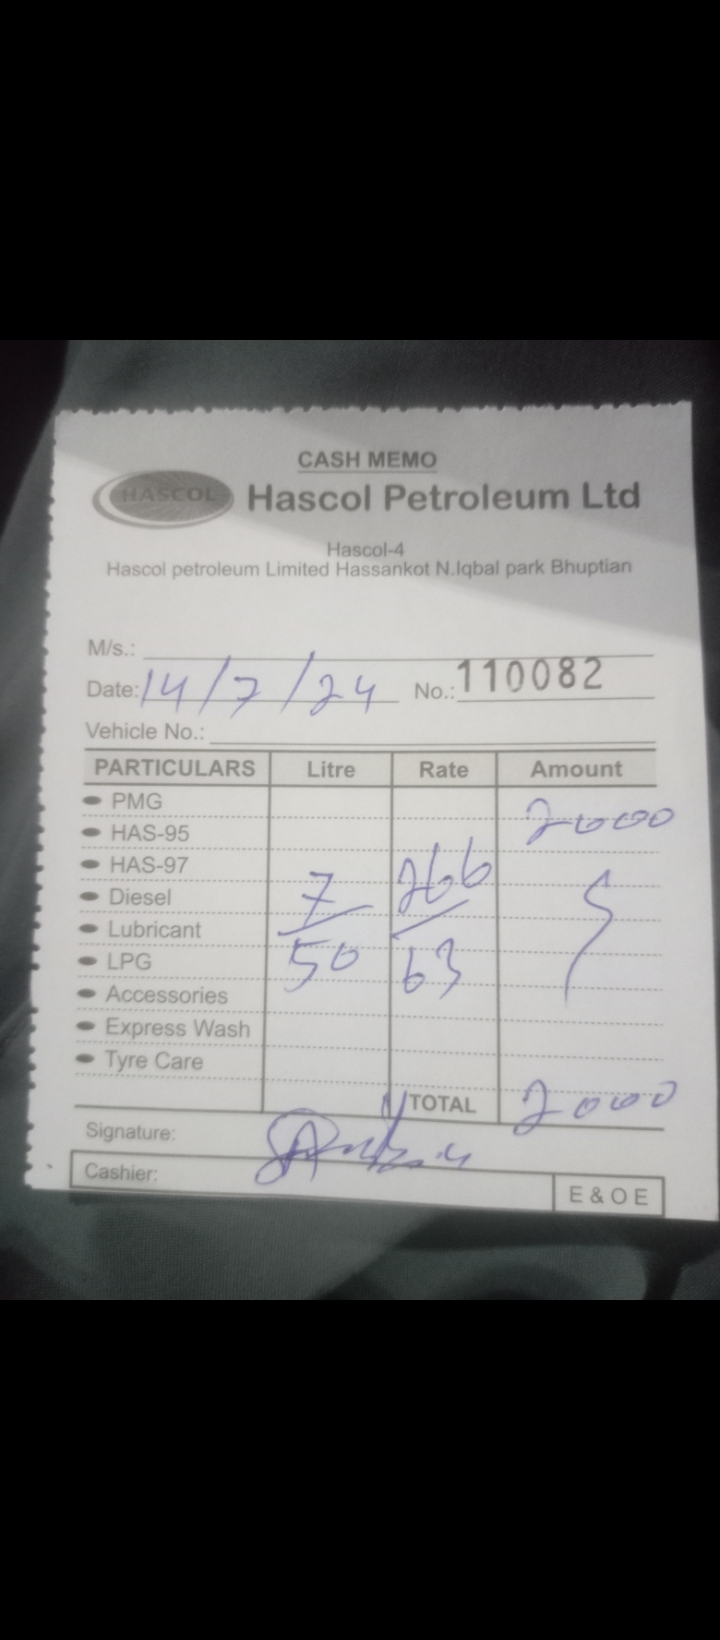 CASH MEMO
HASCOL Hascol Petroleum Ltd
Hascol-4
Hascol petroleum Limited Hassankot N.Iqbal park Bhuptian
M/s.:
Date: 14/7/24 No.: 110082
Vehicle No.:
PARTICULARS Litre Rate Amount
PMG 2000
HAS-95
HAS-97
Diesel 7 266
Lubricant
LPG 50 63
Accessories
Express Wash
Tyre Care
TOTAL 2000
Signature:
Cashier: E & O E